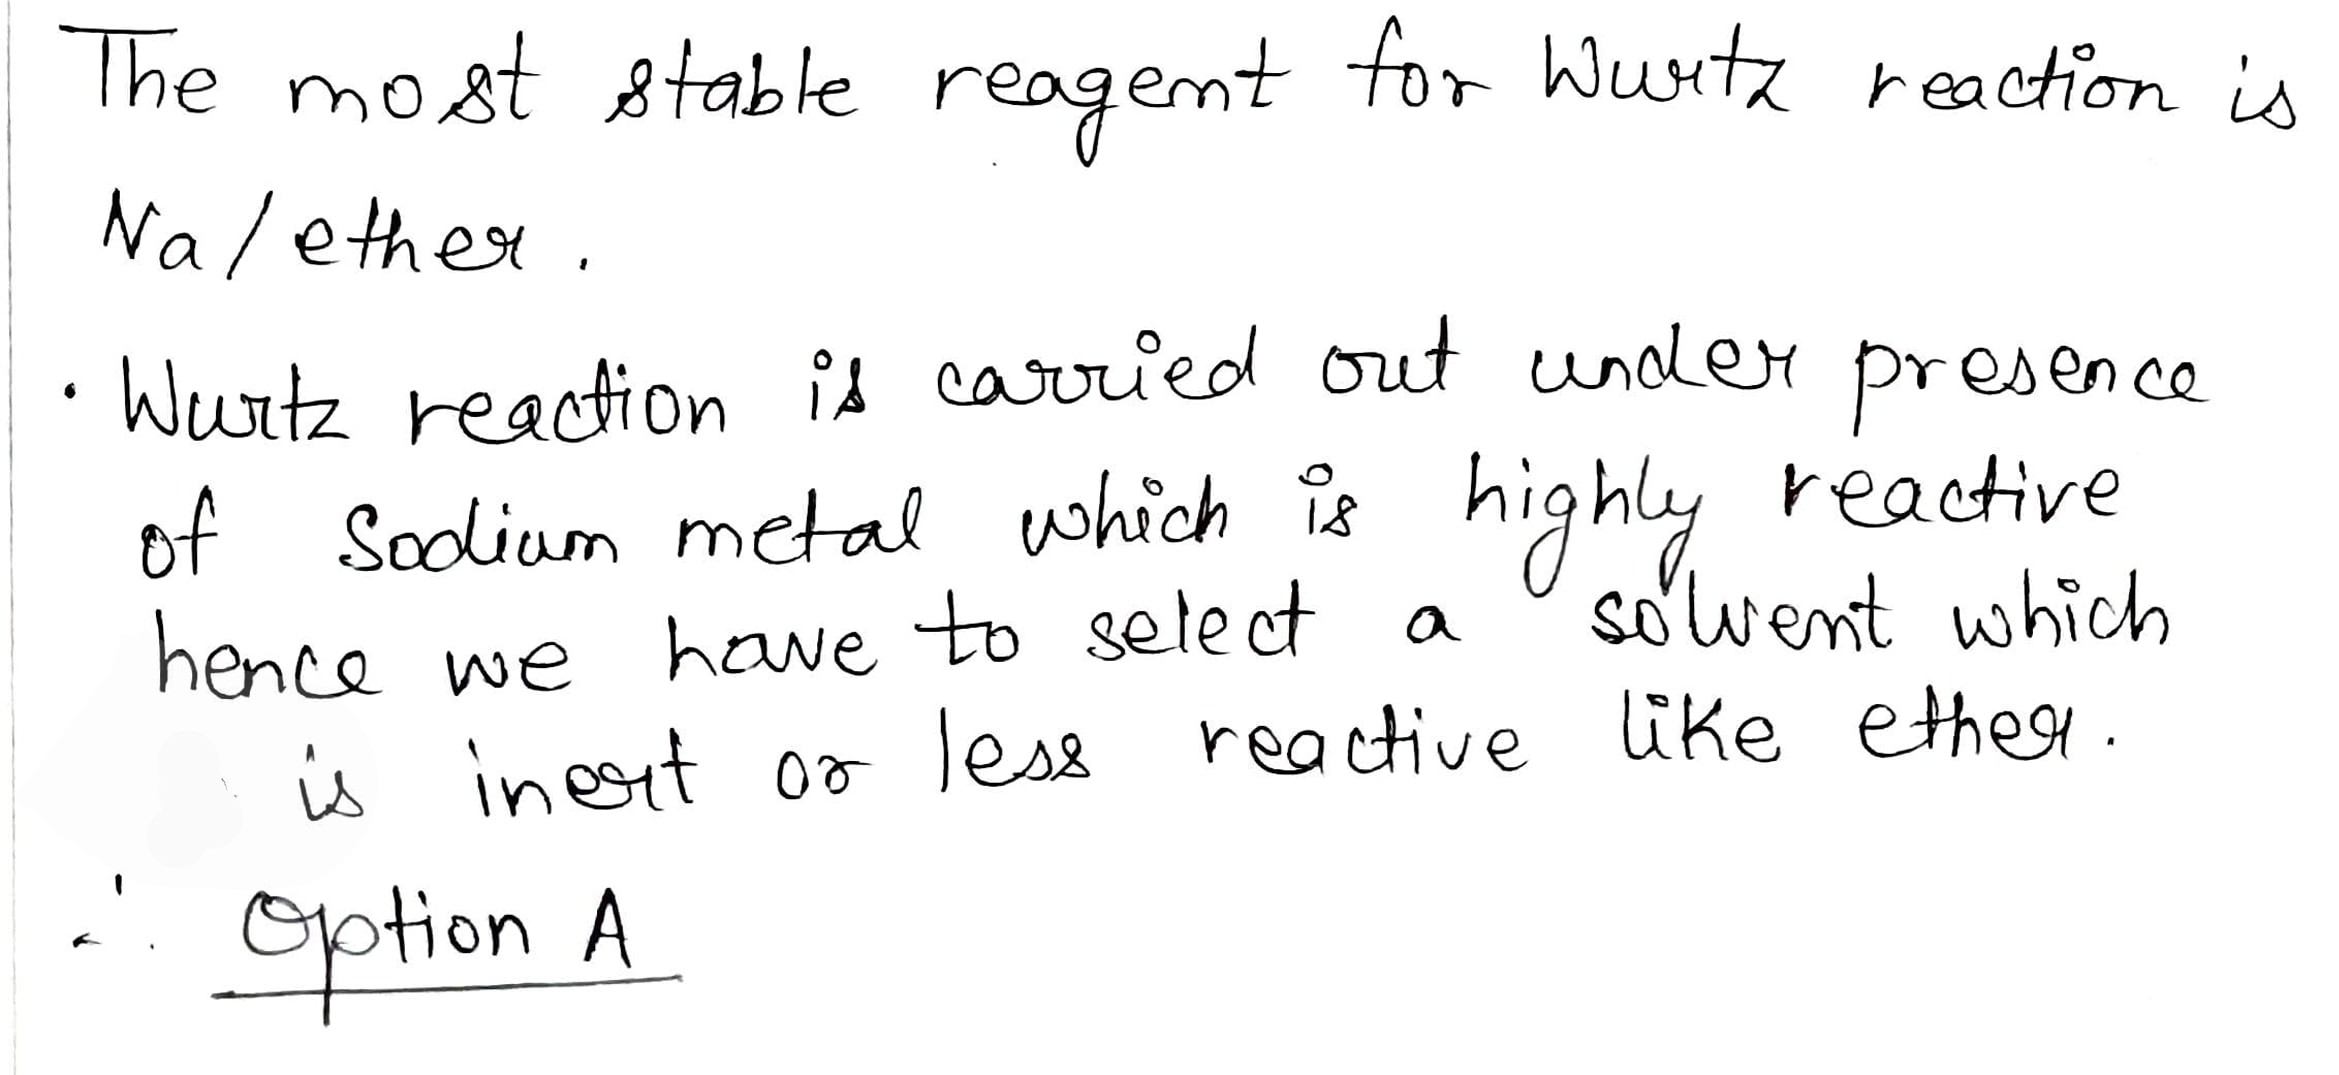 The most stable reagent for Wurtz reaction is
Na/ether.
• Wurtz reaction is carried out under presence
of Sodium metal which is highly reactive
hence we have to select a solvent which
is inert or less reactive like ether.
∴ Option A